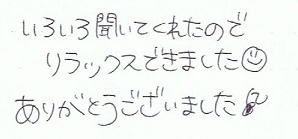 いろいろ聞いてくれたので
リラックスできました☺
ありがとうございました